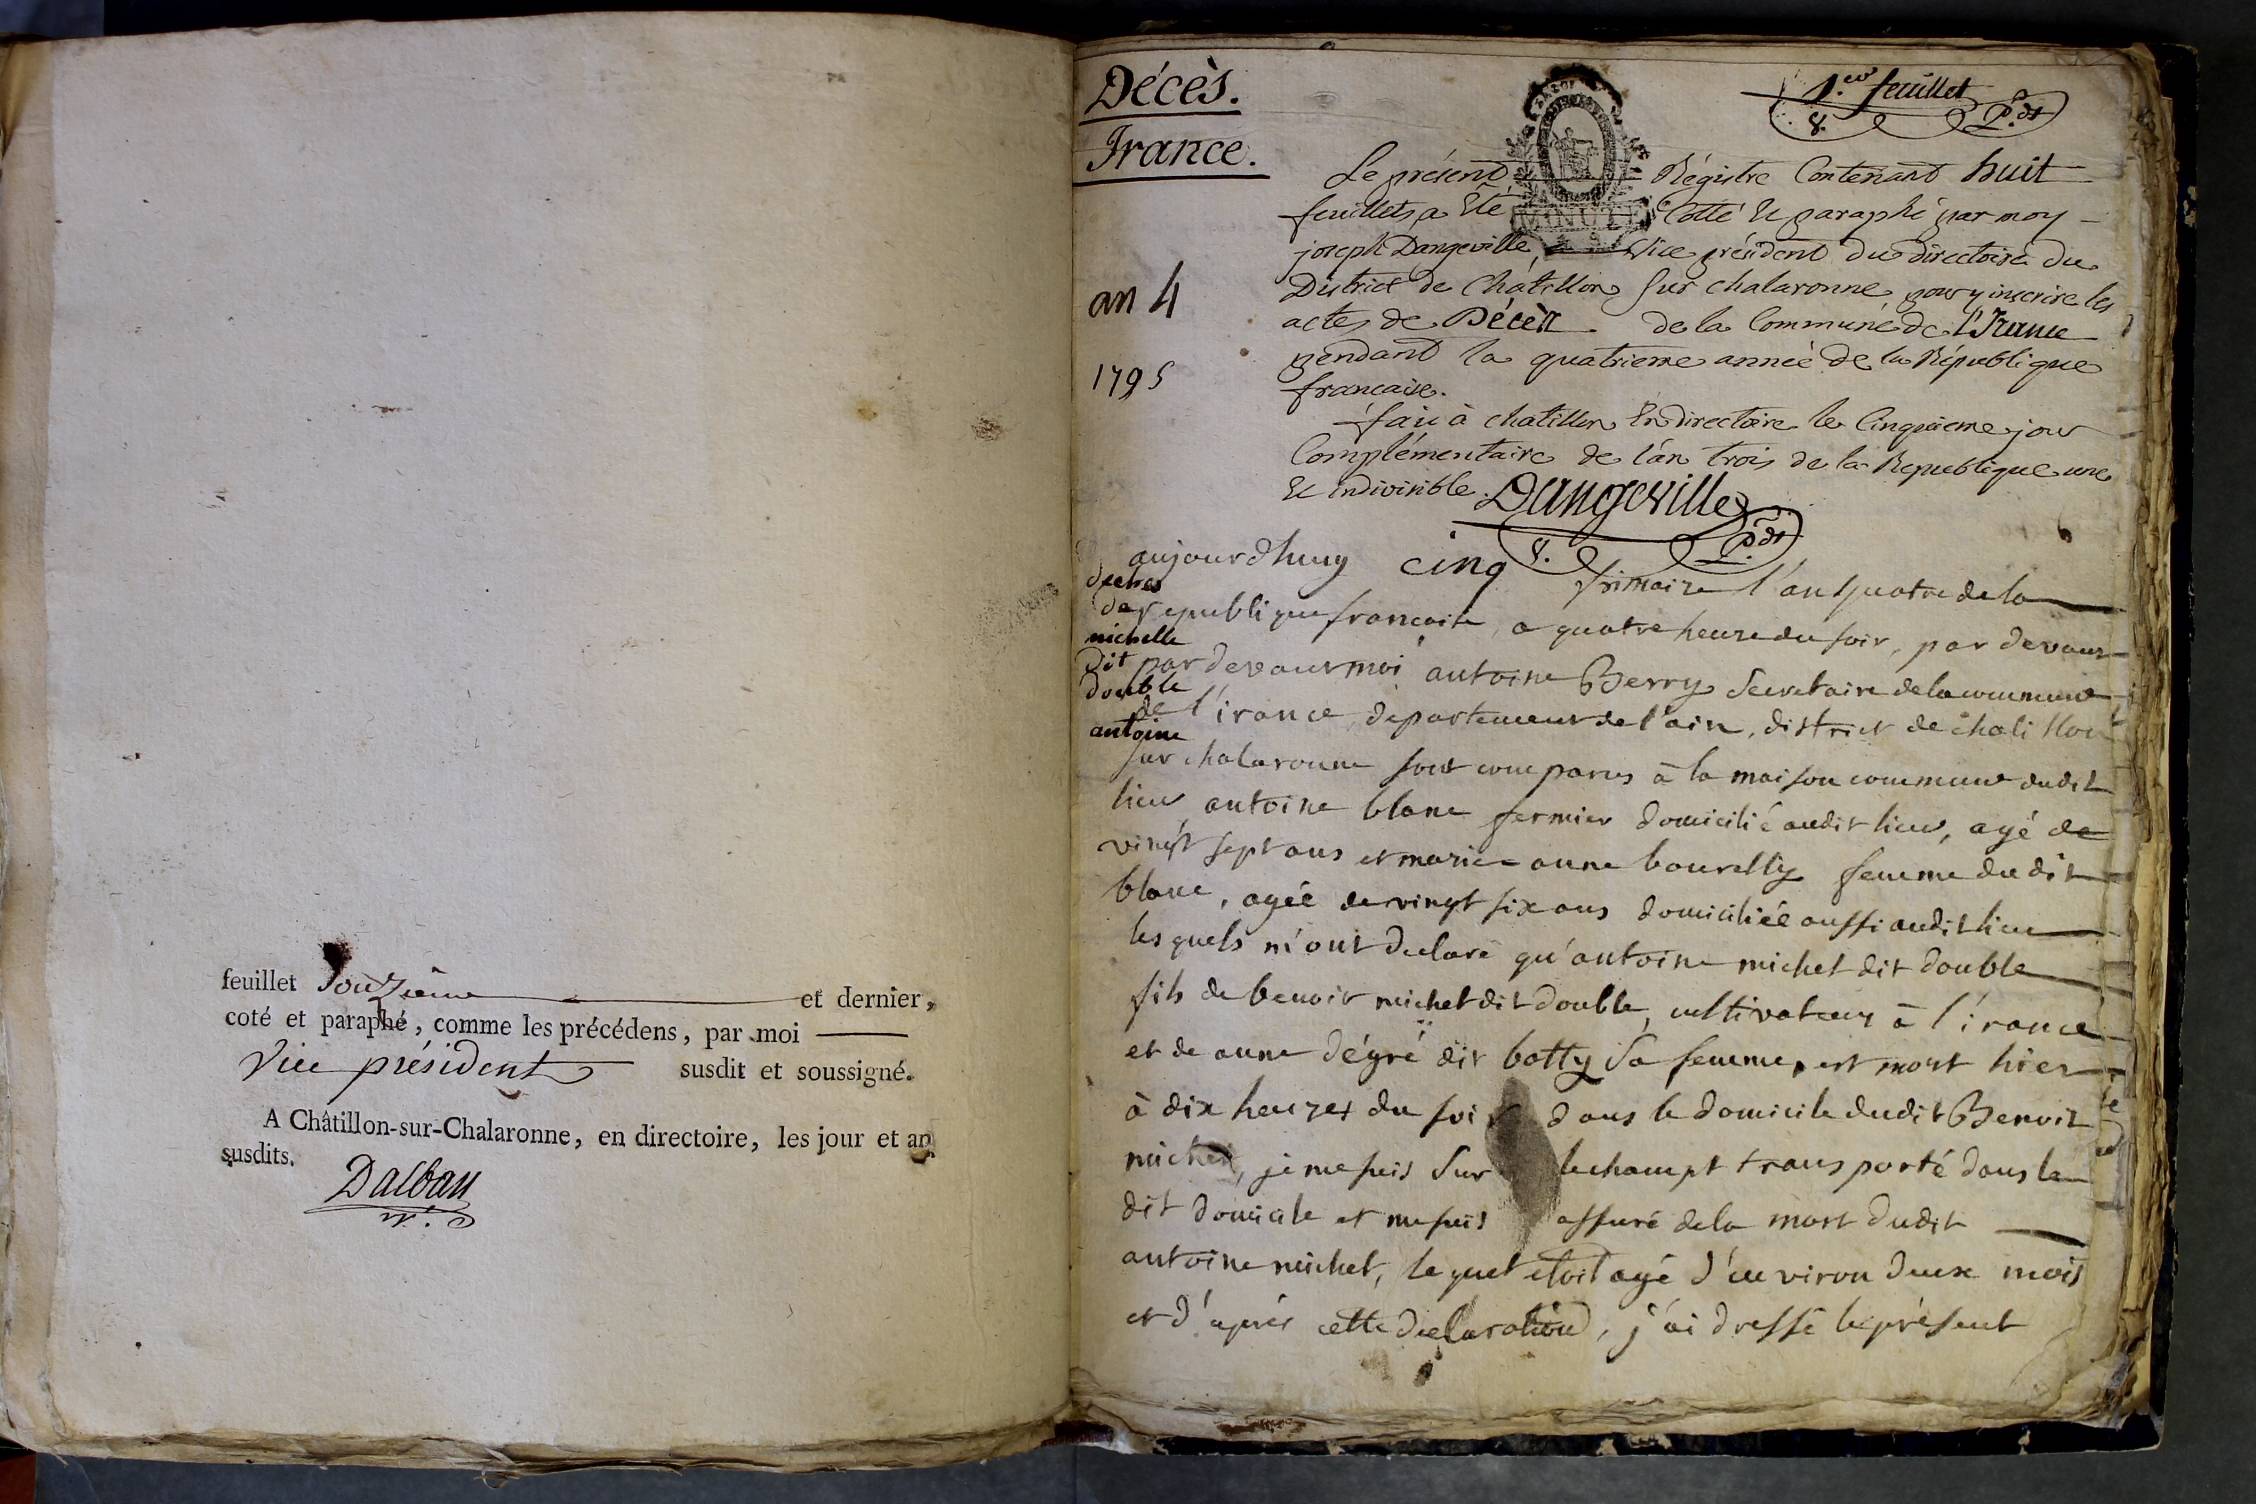 feuillet douzieme et dernier,
coté et paraphé, comme les précédens, par moi
Vice président susdit et soussigné.
A Châtillon-sur-Chalaronne, en directoire, les jour et an
susdits.
Dalban
Décès.
France.
1.er feuillet
8. P.dt
an 4
1795
Le présent Régistre Contenant huit
feuillets a Eté Cotté & paraphé par moy
joseph Dangeville, Vice président du directoire du
District de Châtillon Sur chalaronne, pour y inscrire les
actes de Décès de la Commune de l'Irance
pendant la quatrieme année de la République
francaise.
fait à chatillon En directoire le Cinquieme jour
Complémentaire de l'an trois de la Republique une
& indivisible. Dangeville
8. P.dt
decès
de
michelle
dit
double
antoine
aujourdhuy cinq frimaire l'an quatre de la
republique francaise, a quatre heure du soir, par devant
par devant moi antoine Berry Secretaire de la commune
de l'irance, departement de l'ain, district de chatillon
sur chalaronne sont comparus à la maison commune dudit
lieu, antoine blanc fermier domicilié audit lieu, agé de
vingt sept ans et marie anne bourelly femme dudit
blanc, agée de vingt six ans domiciliée aussi audit lieu
lesquels m'ont declaré qu'antoine michet dit double
fils de benoit michet dit double, cultivateur à l'irance
et de anne dégré dit botty Sa femme, est mort hier
à dix heures du soir dans le domicile dudit Benoit
michet, je me suis Sur lechampt transporté dans le
dit domicile et me suis assuré de la mort dudit
antoine michet, le quel etoit agé d'environ deux mois
et d'après cette declaration, j'ai dressé le présent